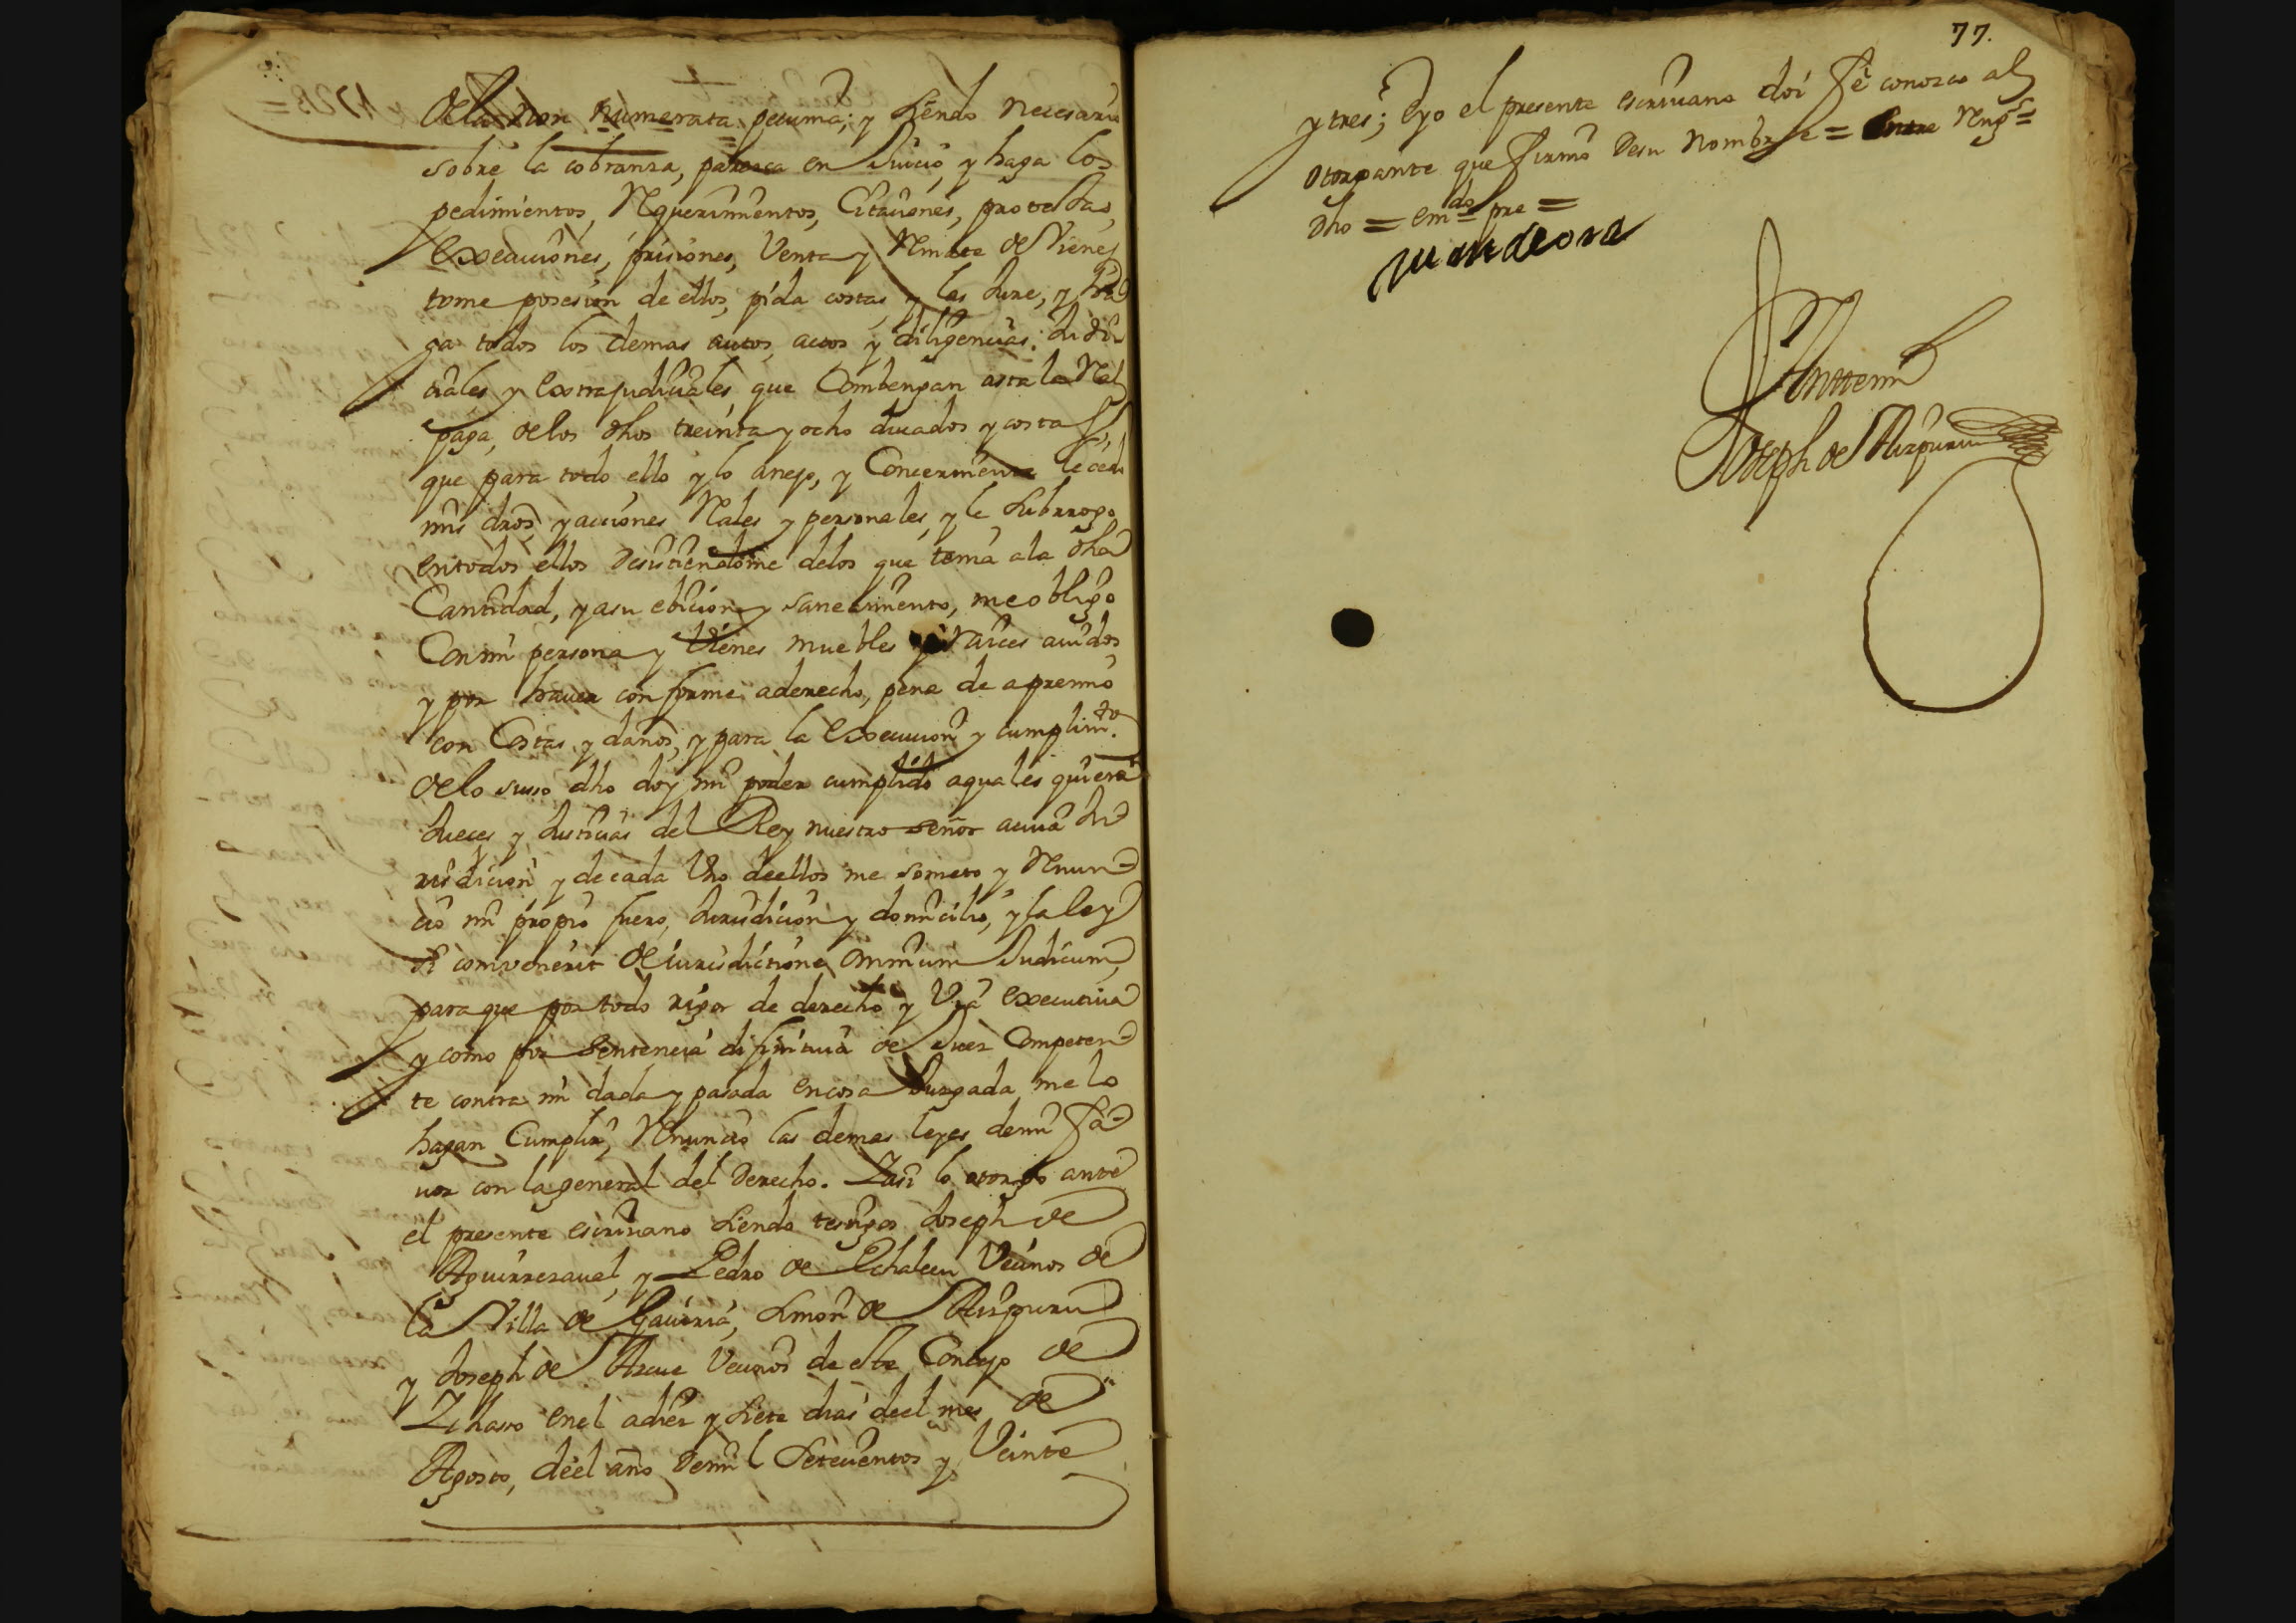 de la non numerata pecunia; y siendo necesario
sobre la cobranza, paresca en Juicio, y haga los
pedimientos, Requerimientos, Citaciones, protestas,
execuciones, prisiones, Venta y Remate de Vienes
tome posesion de ellos, pida costas, y las Jure, y ha
ga todos los demas autos, actos y diligencias Judi
ciales y extrajudiciales, que Combengan asta la Real
paga, de los dhos treinta y ocho ducados y costas,
que para todo ello y lo anejo, y Concerniente le cedo
mis dros, y acciones Reales y personales, y le Subrrogo
en todos ellos desistiendome de los que tenia a la dha
Cantidad, y a su ebicion y saneamiento, me obligo
Con mi persona y Vienes muebles y raices auidos
y por hauer conforme a derecho, pena de apremio
con Costas y daños, y para la execucion y cumplimto.
de lo suso dho doy mi poder cumplido a quales quiera
Jueces y Justicias del Rey nuestro señor a cuia Ju
risdicion y de cada Uno de ellos me someto y Renun
cio mi propio fuero, Jurisdicion y domicilio, y la ley
si convenerit de iurisdictione omnium Judicum,
para que por todo rigor de derecho y Via executiua
y como por Sentencia difinitiua de Juez Competen
te contra mi dada y pasada en cosa Juzgada me lo
hagan Cumplir, Renuncio las demas leyes de mi fa
uor con la general del Derecho. Y asi lo otorgo ante
el presente escriuano siendo testigos Joseph de
Aguirrezaual, y Pedro de Echaleeu Vecinos de
la Villa de Gauiria, Simon de Aizpuru
y Joseph de Azcue Vecinos de este Concejo de
Zihasso en el a diez y siete dias de el mes de
Agosto, de el año de mil Setecientos y Veinte
77.
y tres; e yo el presente escriuano doi fe conozco al
otorgante que firmo de su nombre = Reng.s =
dho = em.do pre =
Juan de ora
Ante mi
Joseph de Aizpuru